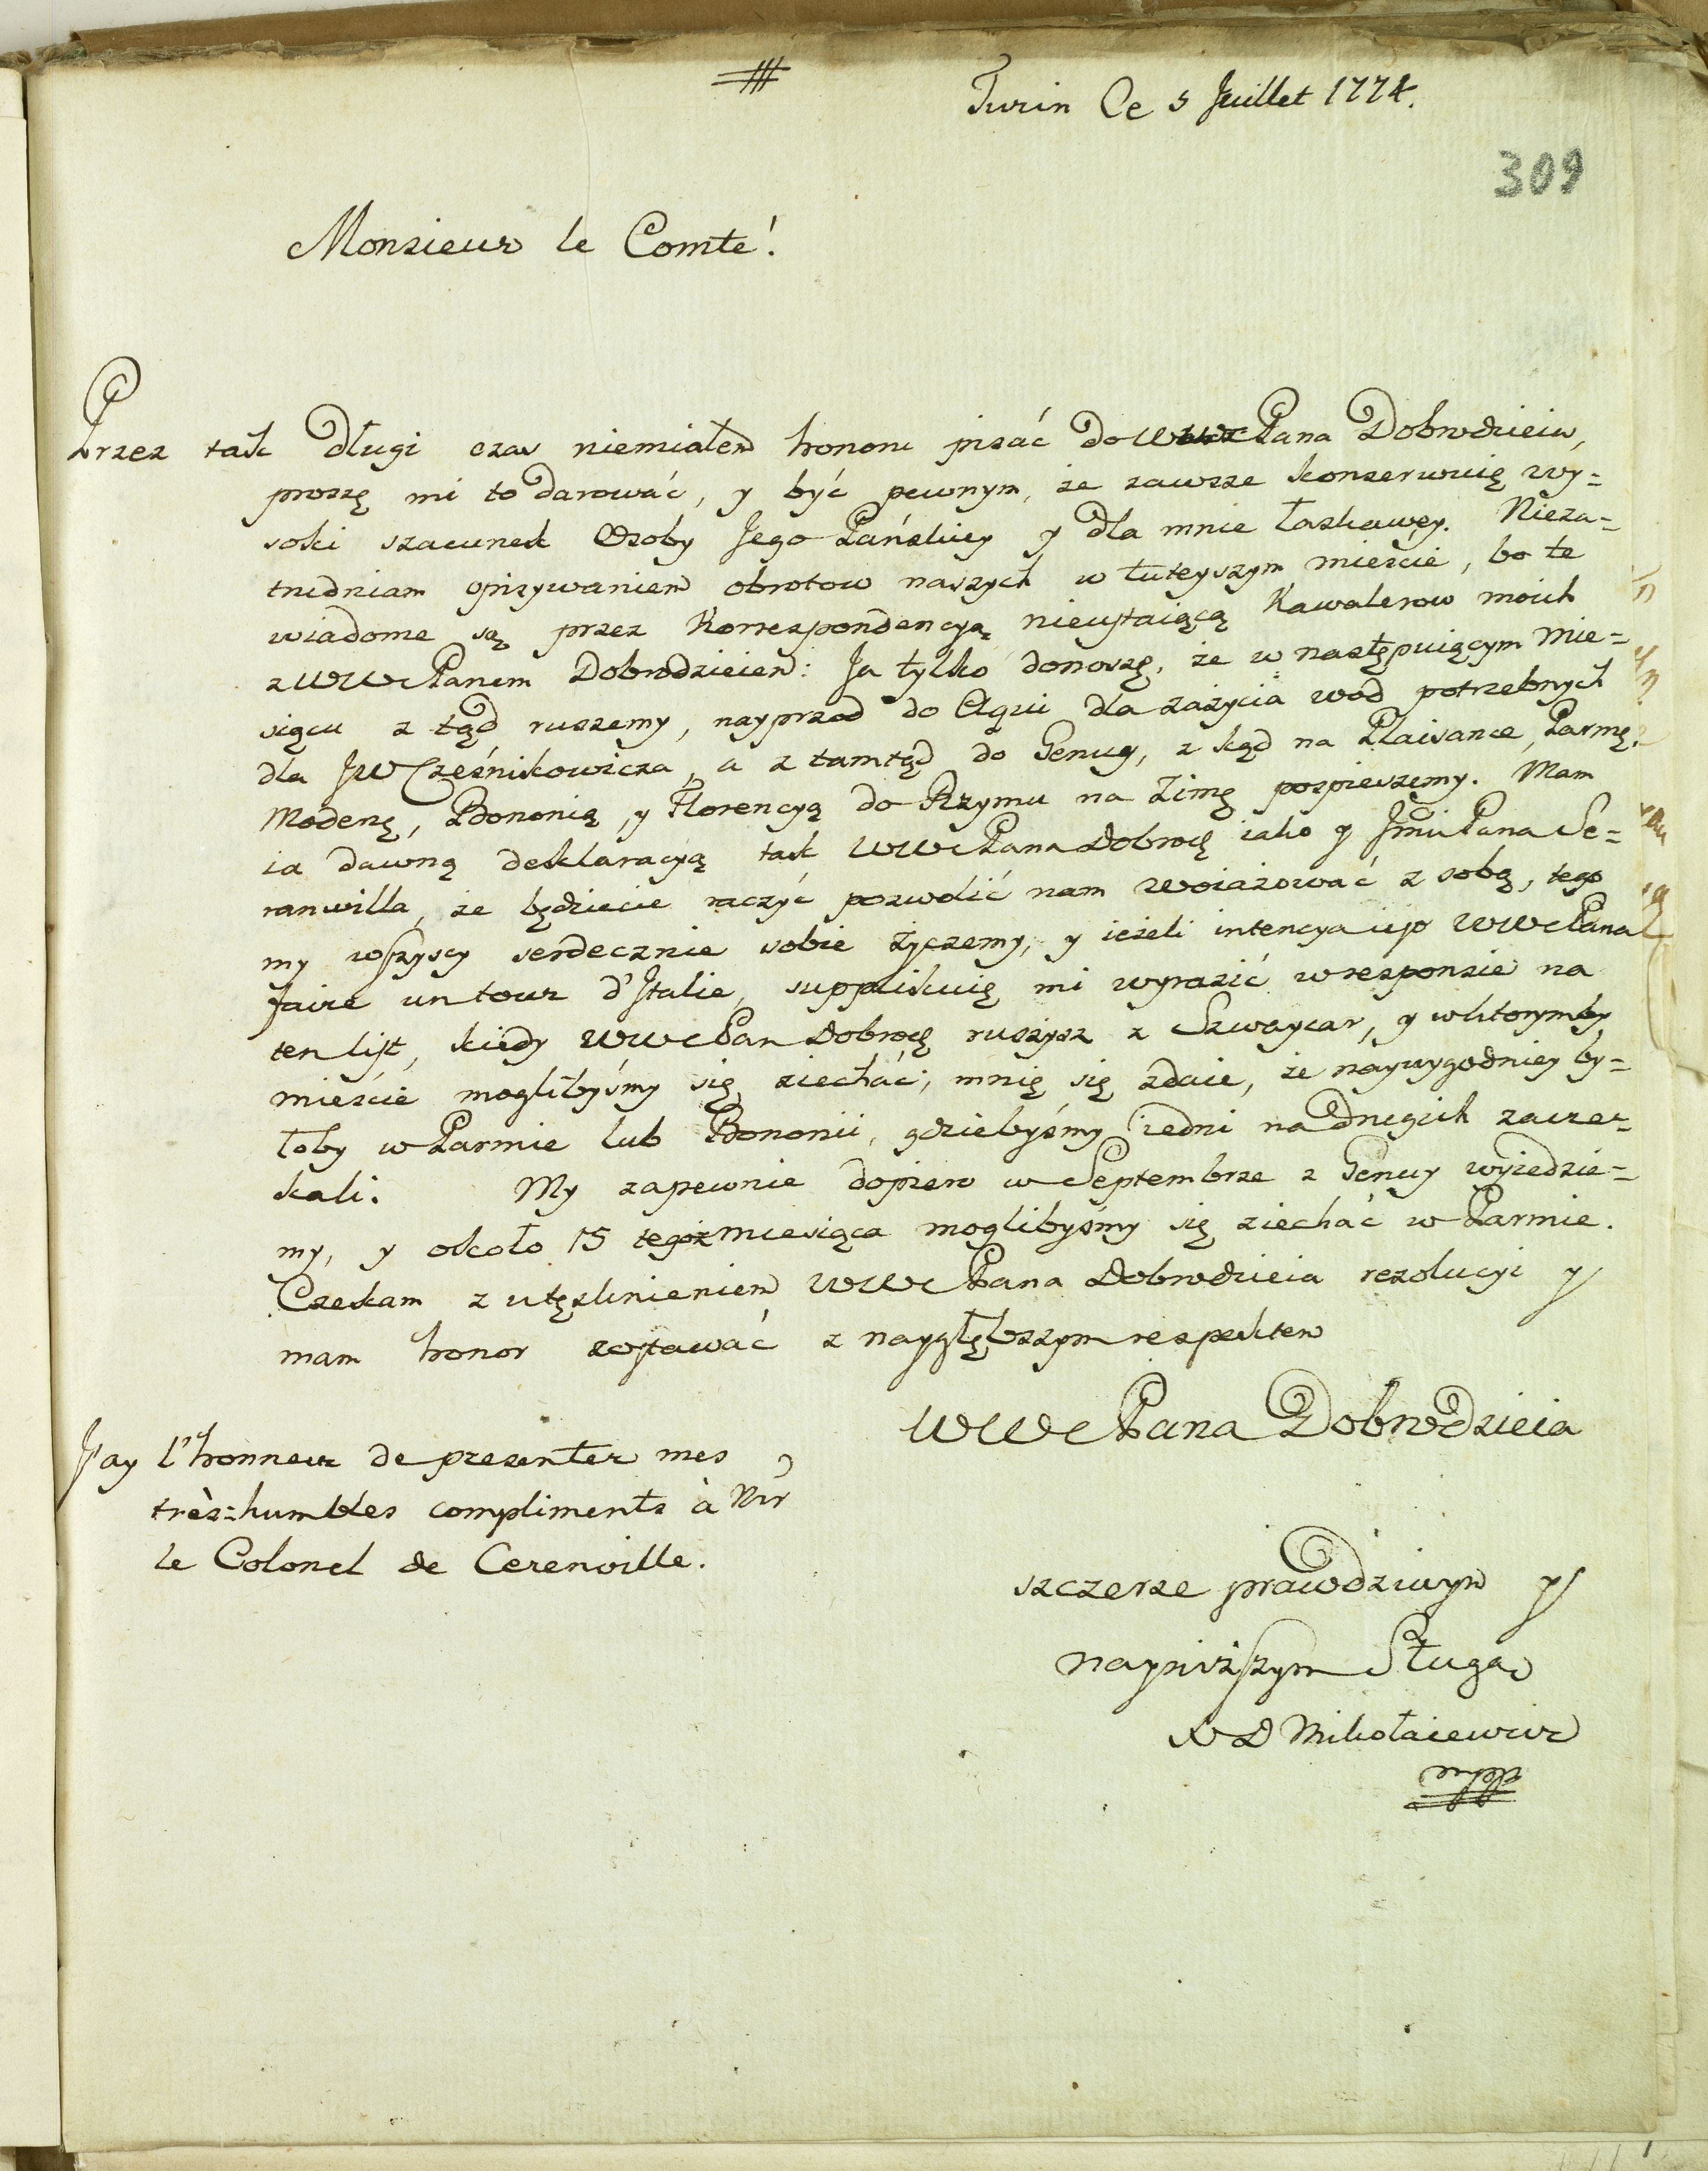 Turin Ce 5 Juillet 1774.
309
Monsieur le Comte!
Przez tak długi czas niemiałem honoru pisać do WWc Pana Dobrodzieia,
proszę mi to darować, y być pewnym, że zawsze konserwuię wy=
soki szacunek Osoby Jego Pańskiey y dla mnie łaskawey. Nieza=
trudniam opisywaniem obrotow naszych w tuteyszym mieście, bo te
wiadome są przez Korrespondencyą nieustaiącą Kawalerow moich
z WWc Panem Dobrodzieiem: Ja tylko donoszę, że w następuiącym Mie=
siącu z tąd ruszemy, nayprzod do Aqui dla zażycia wód potrzebnych
dla JW Cześnikowicza, a z tamtąd do Genuy, z kąd na Plaisance, Parmę,
Modenę, Bononią, y Florencyą do Rzymu na Zimę pospieszemy. Mam
ia dawną deklaracyą tak WWc Pana Dobrocę iako y Jmci Pana Se=
ranwilla, że będziecie raczyć pozwolić nam woiażować z sobą, tego
my wszyscy serdecznie sobie życzemy, y ieżeli intencya iest WWc Pana
faire un tour d'Italie, supplikuię mi wyrazić w responsie na
ten list, kiedy WWc Pan Dobrocę ruszysz z Szwaycar, y w ktorymby
mieście moglibyśmy się ziechać; mnię się zdaie, że naywygodniey by=
łoby w Parmie lub Bononii, gdziebyśmy iedni na drugich zacze=
kali. My zapewnie dopiero w Septembrze z Genuy wyiedzie=
my, y około 15 tegoż Miesiąca moglibyśmy się ziechać w Parmie.
Czekam z utęsknieniem WWc Pana Dobrodzieia rezolucyi y
mam honor zostawać z naygłębszym respektem
WWc Pana Dobrodzieia
J'ay l'honneur de presenter mes
très=humbles compliments à Mr
le Colonel de Cerenville.
szczerze prawdziwym y
nayniższym Sługą
Mikołaiewicz
mpp